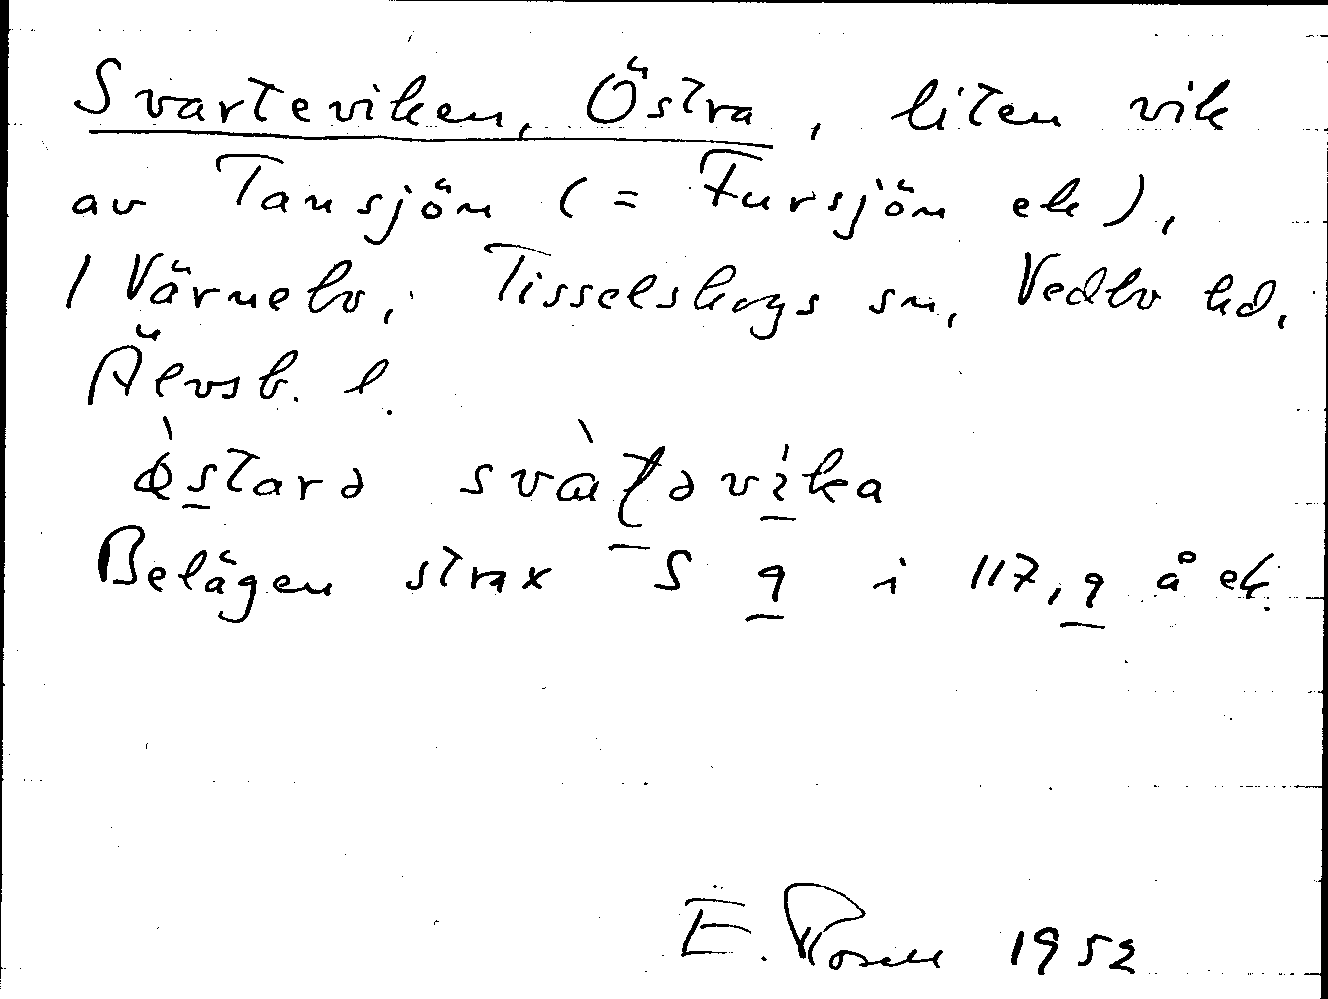 Svarteviken, Östra, liten vik
av Tansjön (= Fursjön ek),
/ Värnebo, Tisselskogs sn, Vedbo hd.
Älvsb. l.
strax S 9 i 117,9 å ek.
Belägen
E. Rosell 1952